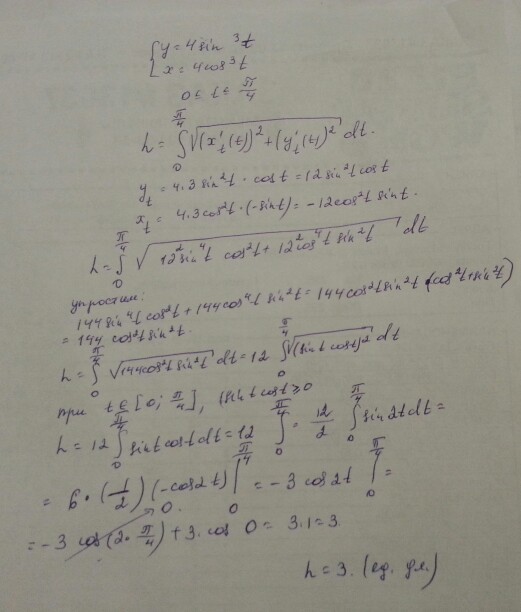 { y = 4 sin³t
x = 4cos³t
0 ≤ t ≤ π/4
L = ∫₀^(π/4) √((x't(t))² + (y't(t))²) dt.
yt = 4·3 sin²t · cos t = 12 sin²t cos t
xt = 4·3cos²t·(-sin t) = -12cos²t sin t.
L = ∫₀^(π/4) √(12² sin⁴t cos²t + 12² cos⁴t sin²t) dt
упростим:
144 sin⁴t cos²t + 144 cos⁴t sin²t = 144 cos²t sin²t (cos²t + sin²t)
= 144 cos²t sin²t.
L = ∫₀^(π/4) √(144cos²t sin²t) dt = 12 ∫₀^(π/4) √((sin t cos t)²) dt
при t ∈ [0; π/4], (sin t cos t ≥ 0
L = 12 ∫₀^(π/4) sin t cos t dt = 12 ∫₀^(π/4) · 12/2 ∫₀^(π/4) sin 2t dt =
= 6 · (1/2) (-cos 2t) |₀^(π/4) = -3 cos 2t ∫₀^(π/4) =
= -3 cos(2·π/4) 0. + 3 · cos 0 = 3·1 = 3.
L = 3. (ед. дл.)